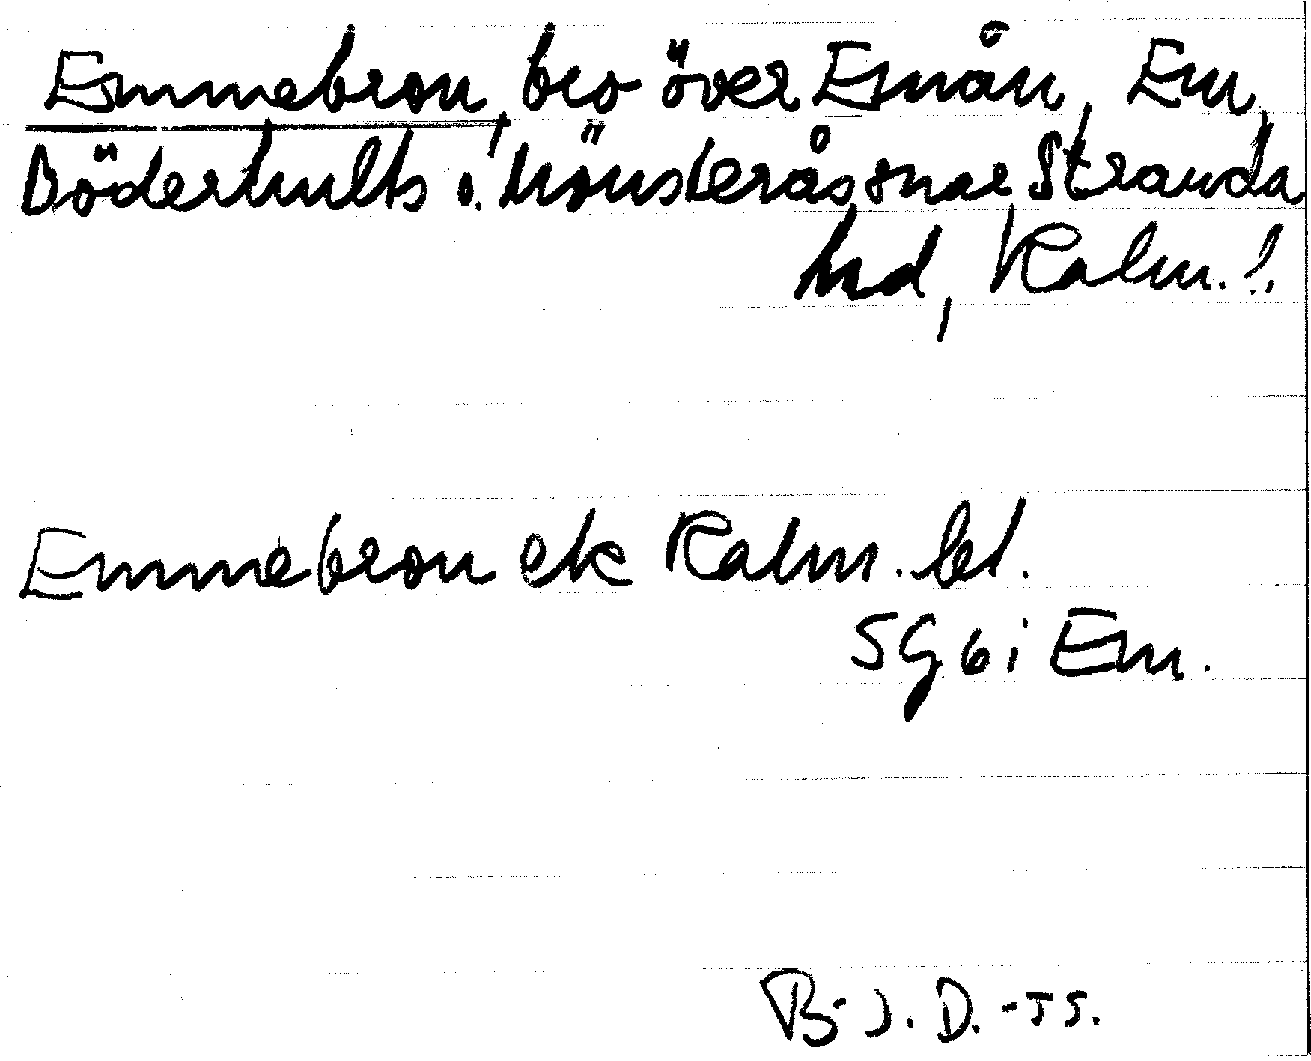 Emmebron, bro över Emån, Em,
Döderhults o. Mönsterås snar Stranda
hd, Kalm. l.
Emmebron ek Kalm. bl.
SG6i Em.
B-J. D. -55.